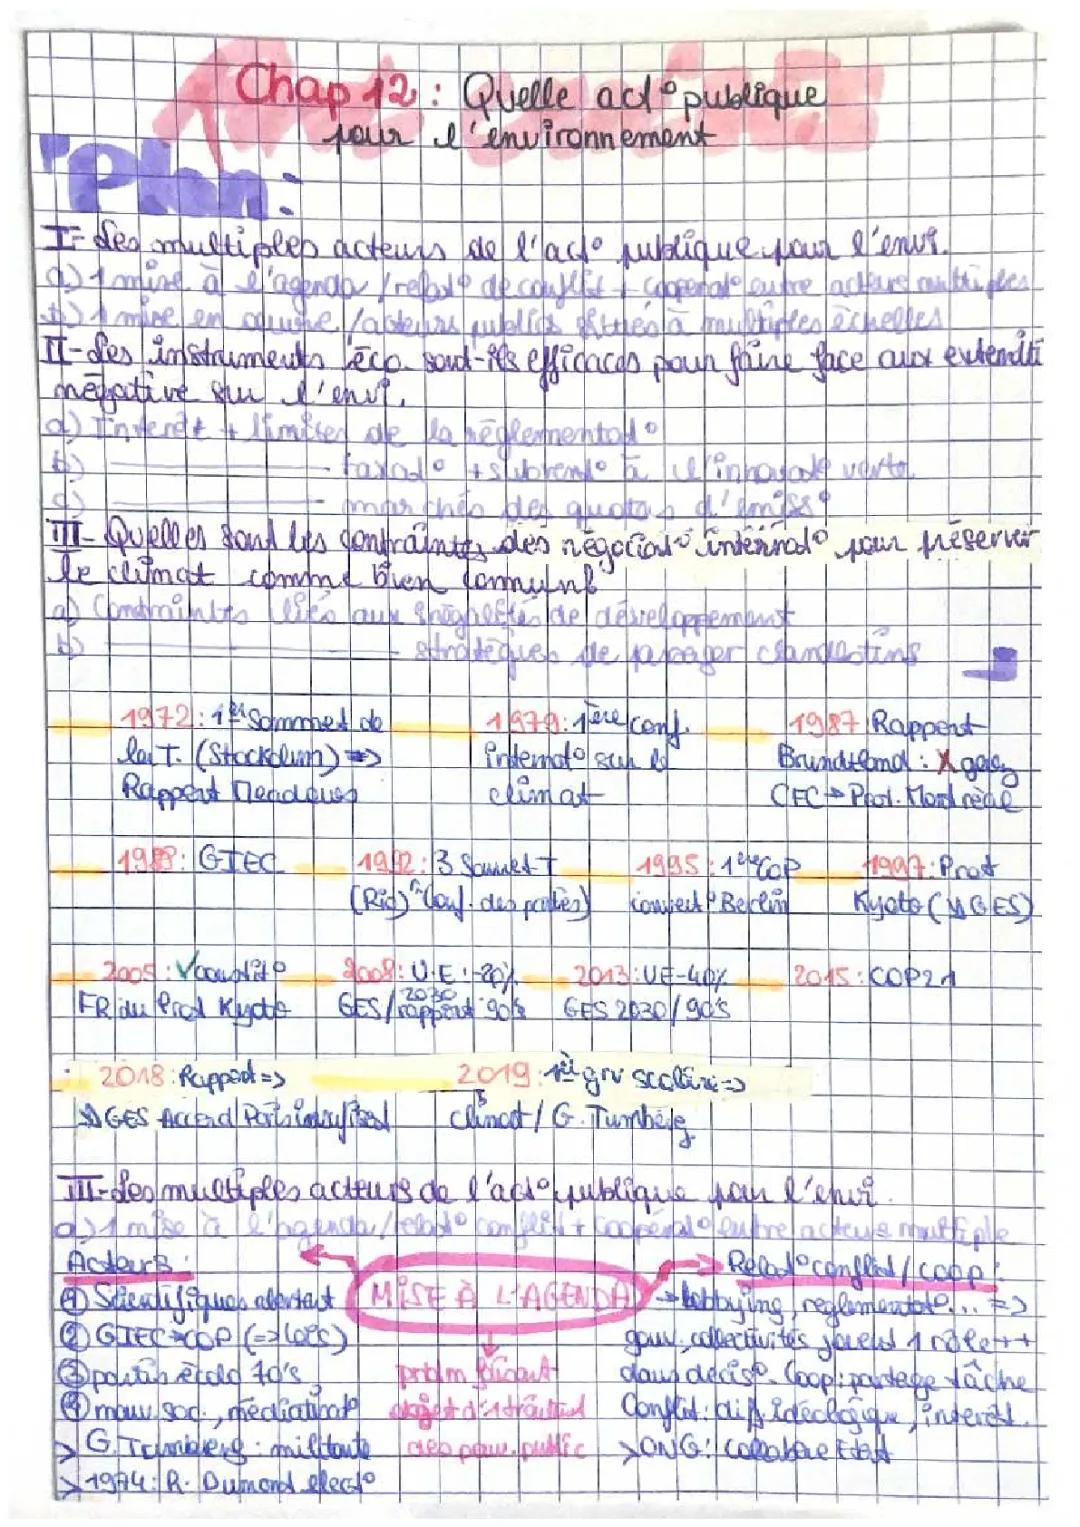 Chap 12 : Quelle act° publique
pour l'environnement
Plan :
I- Les multiples acteurs de l'act° publique pour l'envi.
a) 1 mise à l'agenda / relat° de conflit + coopérat° entre acteurs multiples
b) 1 mise en oeuvre / acteurs publics situés à multiples échelles
II- Les instruments éco sont-ils efficaces pour faire face aux
négative sur l'envi.
a) Intérêt + limites de la réglementat°
b) taxat° + subvent° à l'innovat° verte
c) marchés des quotas d'émiss°
III- Quelles sont les contraintes des négociat° internat° pour préserver
le climat comme bien commun
a) Contraintes liés aux inégalités de développement
b) stratégies de passager clandestins
1972 : 1er Sommet de
la T. (Stockolm) =>
Rapport Meadows
1979 : 1ère conf.
internat° sur le
climat
1987 Rapport
Brundtland :
CFC → Prot. Montréal
1988 : GIEC
1992 : 3 Sommet T
(Rio) "Conf. des parties)
1995 : 1ère COP
Berlin
1997 : Prot
Kyoto (↘ GES)
2005 :
du Prot Kyoto
2008 : U.E : -20%
GES / 2030 rapport 90's
2013 : UE -40%
GES 2030 / 90's
2015 : COP21
2018 : Rapport =>
GES Accord Paris insuffisant
2019 : 1ère grv scolaire =>
climat / G. Tumberg
III- Les multiples acteurs de l'act° publique pour l'envi.
a) 1 mise à l'agenda / relat° conflit + coopérat° entre acteurs multiple
Acteurs :
① Scientifiques alertent
② GIEC → COP
③ partis écolo 70's
④ mouv. soc., médiatisat°
> G. Tumberg : militante
> 1974 : R. Dumond élect°
MISE À L'AGENDA
prblm faisant
objet d'1 traitmt
des pouv. public
Relat° conflit / coop :
→ lobbying, réglementat°... =>
gouv, collectivités jouent 1 rôle ++
dans décis°. Coop : partage tâche
Conflit : diff idéologique, intérêt.
> ONG : collabore Etat